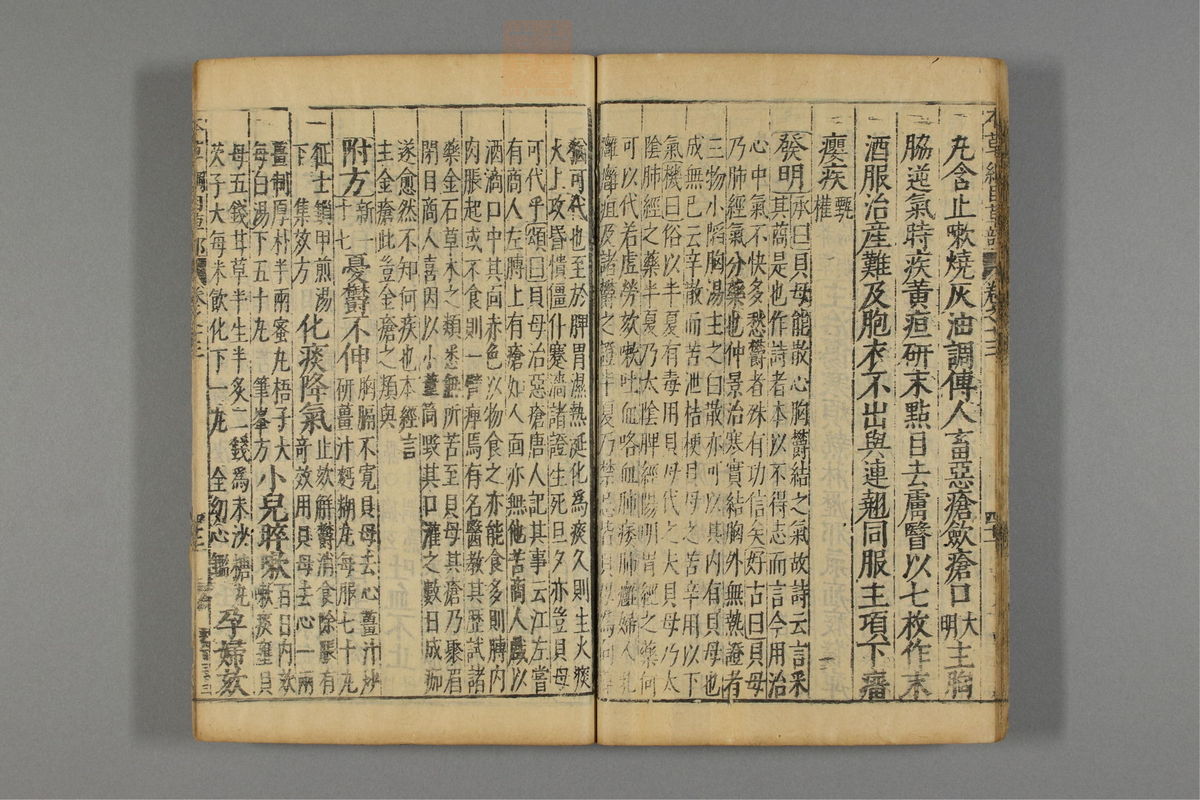 丸含止嗽燒灰油調傅人畜惡瘡斂瘡口大明主胸
脇逆氣時疾黃疸研末點目去膚瞖以七枚作末
酒服治產難及胞衣不出與連翹同服主項下瘤
癭疾甄權
發明承曰貝母能散心胸鬱結之氣故詩云言采
其蝱是也作詩者本以不得志而言今用治
心中氣不快多愁鬱者殊有功信矣好古曰貝母
乃肺經氣分藥也仲景治寒實結胸外無熱證者
三物小陷胸湯主之白散亦可以其內有貝母也
成無己云辛散而苦泄桔梗貝母之苦辛用以下
氣機曰俗以半夏有毒用貝母代之夫貝母乃太
陰肺經之藥半夏乃太陰脾經陽明胃經之藥何
可以代若虛勞欬嗽吐血咯血肺痿肺癰婦人乳
癰癰疽及諸鬱之證半夏乃禁忌皆貝母爲向
猶可代也至於脾胃濕熱涎化爲痰久則生火痰
火上攻昏憒僵仆蹇濇諸證生死旦夕亦豈貝母
可代乎頌曰貝母治惡瘡唐人記其事云江左嘗
有商人左膊上有瘡如人面亦無他苦商人戲以
酒滴口中其面赤色以物食之亦能食多則膊內
肉脹起或不食則一臂痺焉有名醫教其歷試諸
藥金石草木之類悉無所苦至貝母其瘡乃聚眉
閉目商人喜因以小葦筒毀其口灌之數日成痂
遂愈然不知何疾也本經言
主金瘡此豈金瘡之類與
附方新一十七憂鬱不伸胸膈不寬貝母去心薑汁炒
研薑汁麪糊丸每服七十丸
征士鎖甲煎湯
下集效方化痰降氣止欬解鬱消食除脹有
奇效用貝母去心一兩
薑制厚朴半兩蜜丸梧子大
每白湯下五十丸筆峯方小兒晬嗽百日內欬
嗽痰壅貝
母五錢甘草半生半炙二錢爲末沙糖丸
芡子大每米飲化下一丸全幼心鑑孕婦欬
本草綱目草部 卷之十三